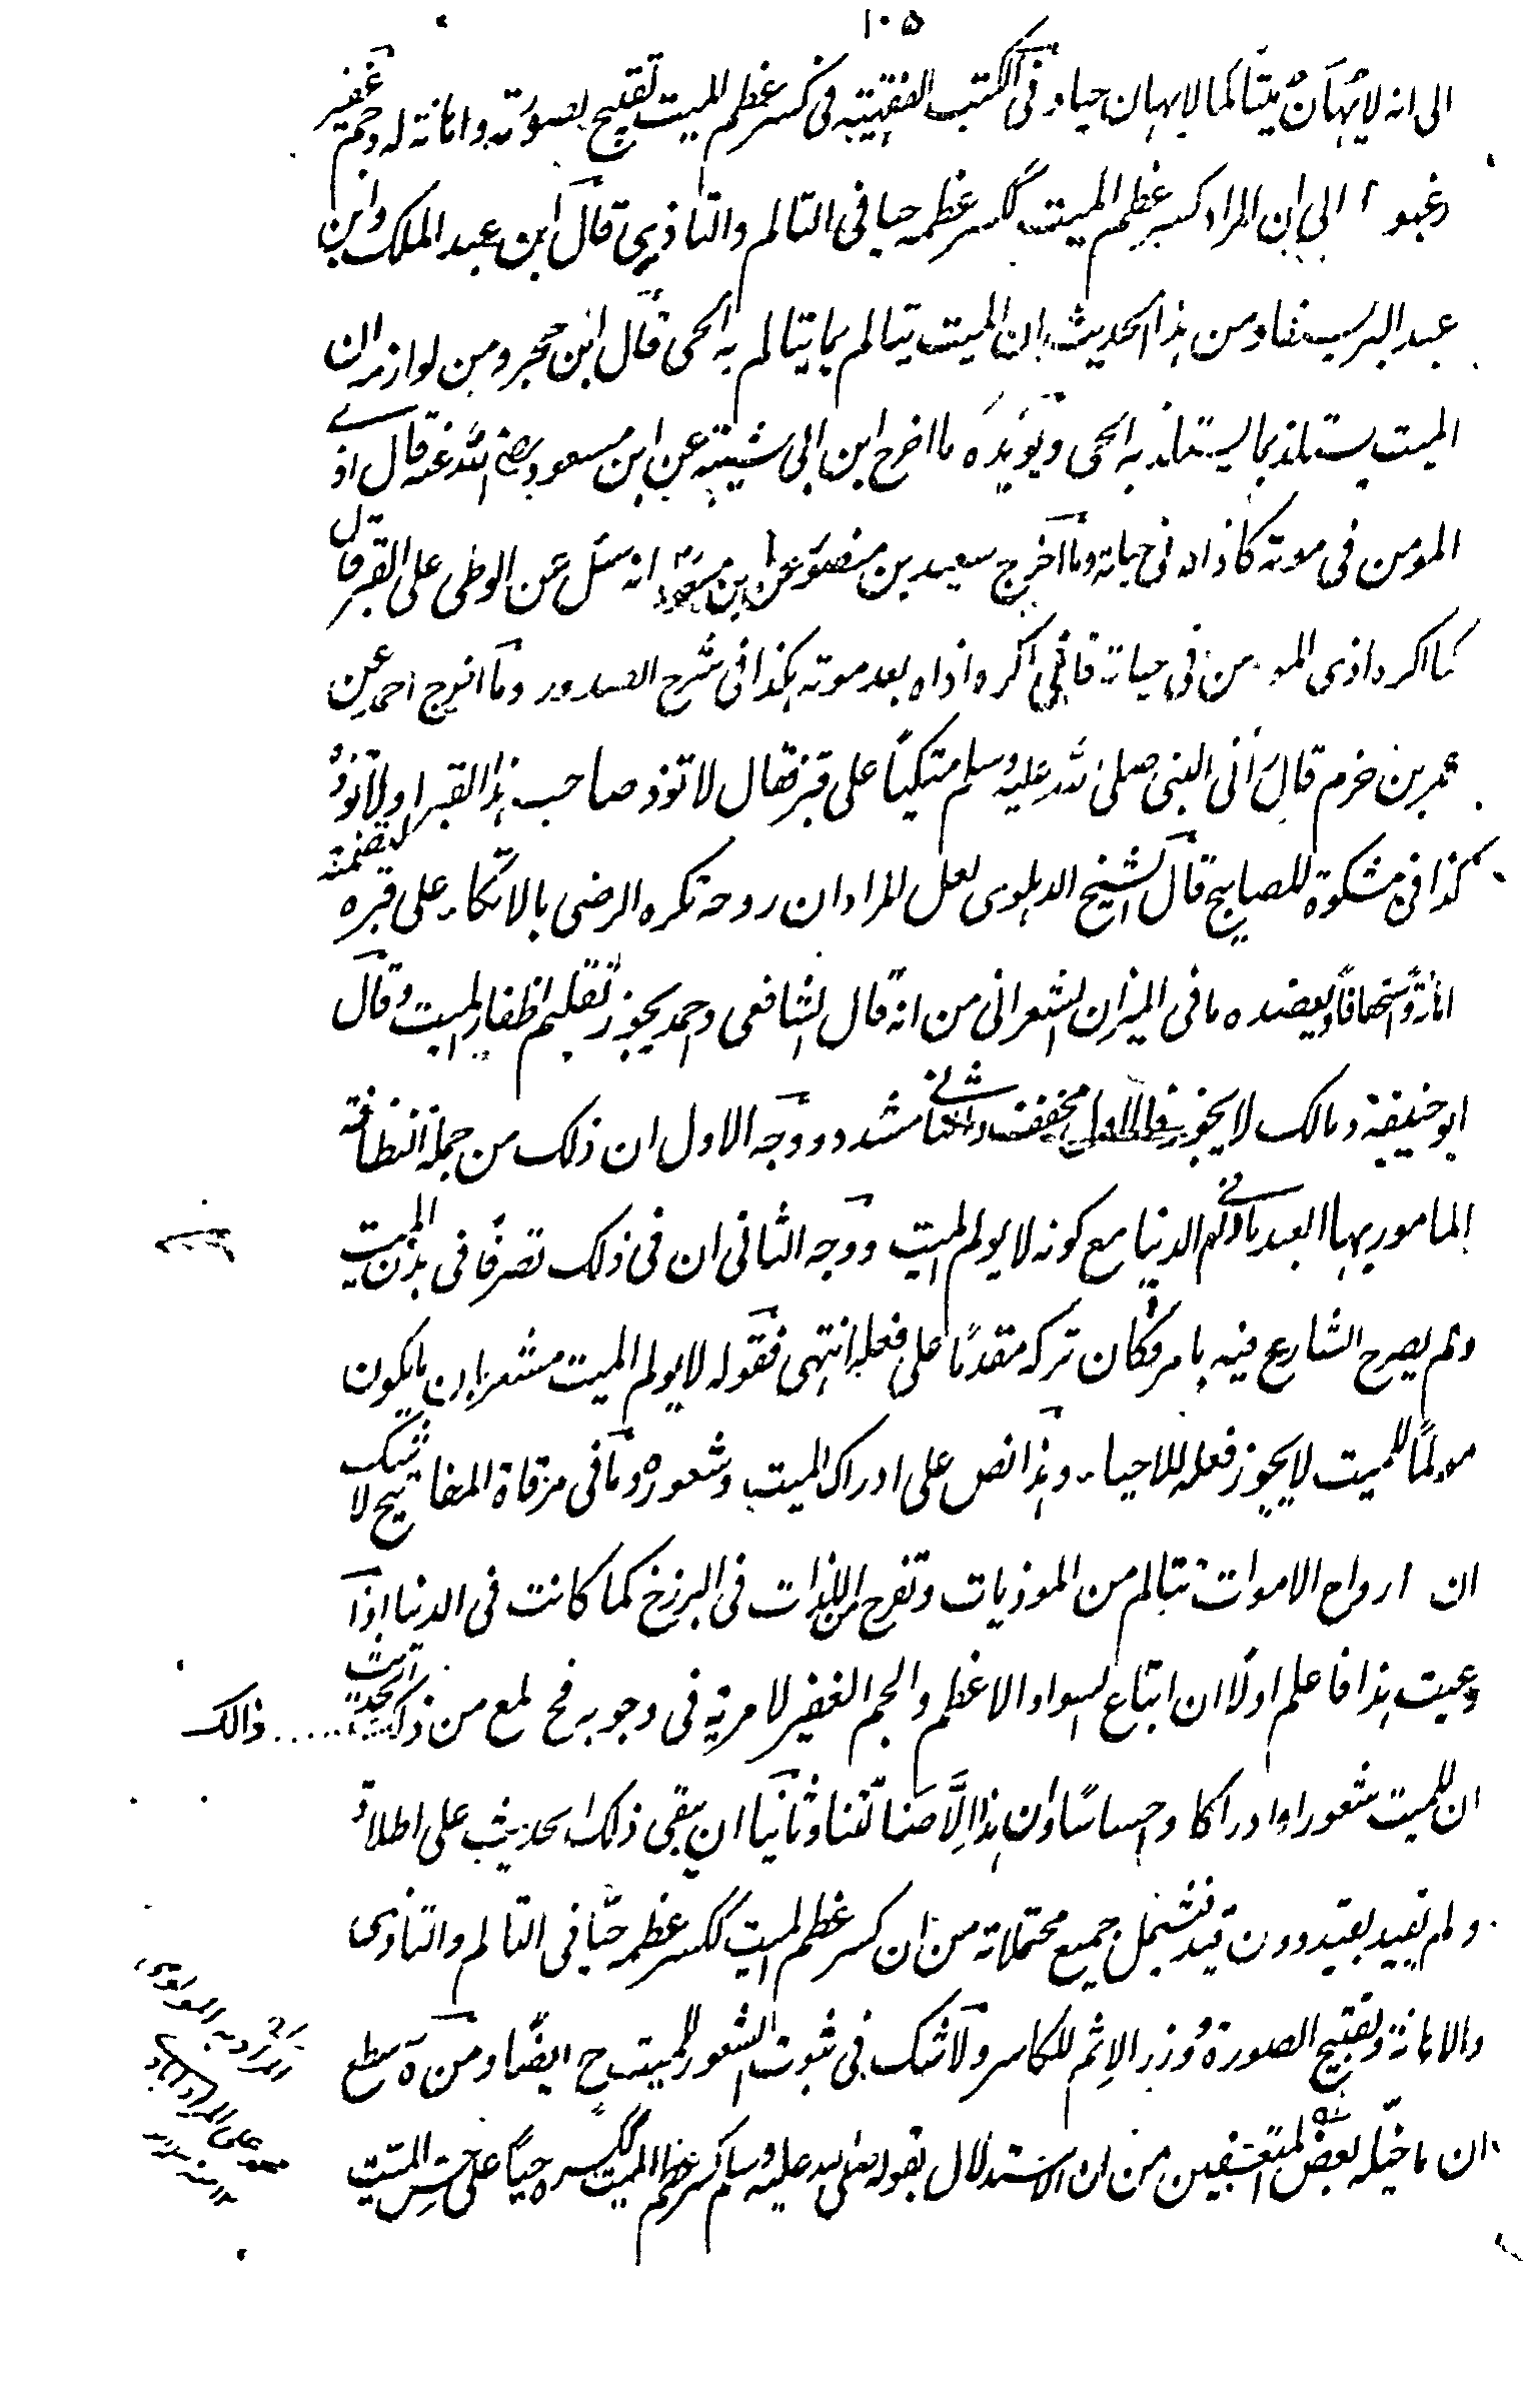 ١٠٥
الی انه لا یُهَانُ میتًا کما لا یهان حیا و فی الکتب الفقهیه فی کسر عظم المیت تقبیح لصورته و اهانة له و جم غفیر
ذهبوا الی ان المراد کسر عظم المیت ککسر عظمه حیا فی التالم و التاذی قال ابن عبد الملک و ابن
عبد البر یستفاد من هذا الحدیث ان المیت یتالم بما یتالم به الحی قال ابن حجر و من لوازمه ان
المیت یستلذ بما یستلذ به الحی و یؤیده ما اخرج ابن ابی شیبه عن ابن مسعود رضی الله عنه قال اذی
المومن فی موته کاذاه فی حیاته و ما اخرج سعید بن منصور عن ابن مسعود رض انه سئل عن الوطی علی القبر قال
کما اکره اذی المومن فی حیاته فانی اکره اذاه بعد موته هکذا فی شرح الصدور و ما اخرج احمد عن
عمرو بن حزم قال رآنی النبی صلی الله علیه وسلم متکیًا علی قبر فقال لا توذ صاحب هذا القبر او لا توذه
کذا فی مشکوة المصابیح قال الشیخ الدهلوی لعل المراد ان روحه تکره الرضی بالاتکاء علی قبره لتضمنه
اهانةً و استخفافًا و یعضده ما فی المیزان للشعرانی من انه قال الشافعی و احمد یجوز تقلیم اظفار المیت و قال
ابو حنیفة و مالک لا یجوز فالاول مخفف و الثانی مشدد و وجه الاول ان ذلک من جملة النظافة
المامور بها العبد مادام فی الدنیا مع کونه لا یولم المیت و وجه الثانی ان فی ذلک تصرفًا فی بدن المیت
و لم یصرح الشارع فیه بامر فکان ترکه مقدمًا علی فعله انتهی فقوله لا یولم المیت مشعر بان ما یکون
مولمًا للمیت لا یجوز فعله للاحیاء و هذا نص علی ادراک المیت و شعوره و ما فی مرقاة المفاتیح لا شک
ان ارواح الاموات تتالم من الموذیات و تفرح من اللذات فی البرزخ کما کانت فی الدنیا اذا
وعیت هذا فاعلم اولًا ان اتباع السواد الاعظم و الجم الغفیر لا مریة فی وجوبه فح لمع من ذلک الحدیث ..... ذالک
ان للمیت شعورا و ادراکا و احساسًا و ان هذا اِلَّا ضالتنا و ثانیا ان یبقی ذلک الحدیث علی اطلاقه
و لم یقید بقید دون قید فتشمل جمیع محتملاته من ان کسر عظم المیت ککسر عظمه حیًا فی التالم و التاذی
و الاهانة و تقبیح الصورة وُ وزر الاِثم للکاسر و لا شک فی ثبوت الشعور للمیت ح ایضًا و من هٓ سطع
ان ما خیّله بعض المتعسفین من ان الاستدلال بقوله صلی الله علیه وسلم کسر عظم المیت ککسره حیًا علی حس المیّت
المراد به المولوی